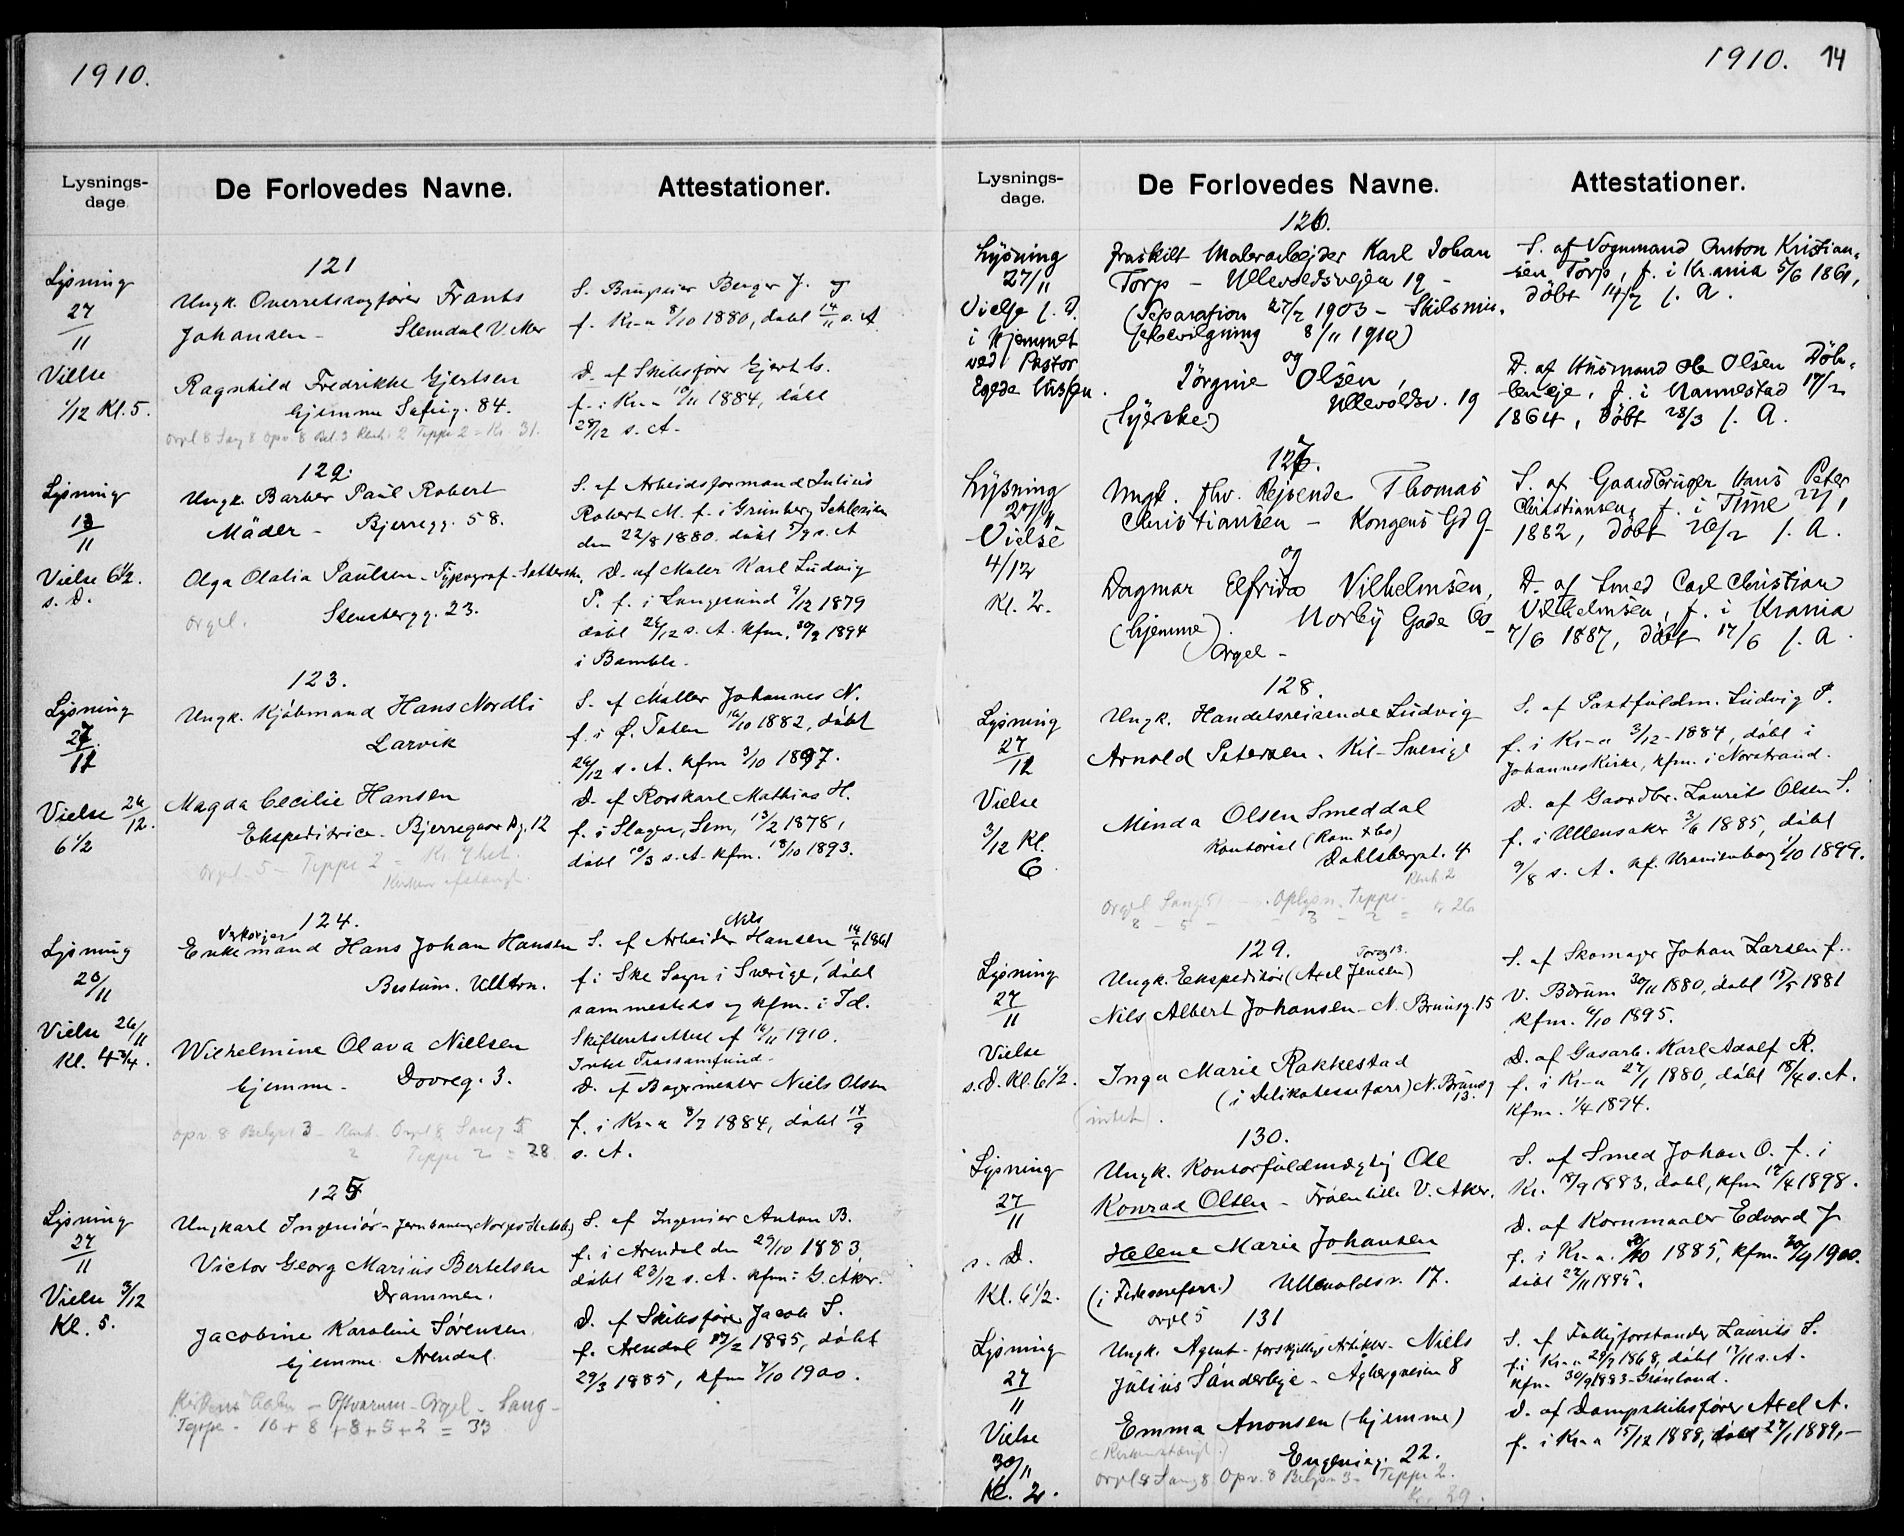 1910.
Lysnings-
dage.
De Forlovedes Navne.
Attestationer.
121
Lysning
27/11
Vielse
1/12 Kl. 5.
Ungk. Overretssagfører Frants
Johansen - Slemdal V. Aker
Ragnhild Fredrikke Gjertsen
hjemme Sofieg. 84.
Orgel 8 Sang 8 Opv. 8 Bel. 3 Tæppe 2 = Kr. 31.
f. Kr-a 8/10 1880, døbt 14/11 s. A.
D. af Skibsfører Gjert G.
f. i Kr-a 10/11 1884, døbt
28/12 s. A.
122.
Lysning
13/11
Vielse 6 1/2.
s. D.
Ungk. Barber Paul Robert
Mäder - Bjerregg. 58.
Olga Olalia Paulsen - Typograf-
Stensbergg. 23.
orgel.
S. af Arbeidsformand Julius
Robert M. f. i Grünberg Schlesien
den 22/8 1880. døbt 5/9 s. A
D. af Maler Karl Ludvig
P. f. i Langesund 9/12 1879
døbt 26/12 s. A. kfm. 30/9 1894
i Bamble.
123.
Lysning
27/11
Vielse 26/12.
6 1/2
Ungk. Kjøbmand Hans Nordli
Larvik
Magda Cecilie Hansen
Ekspeditrice - Bjerregaardsg. 12
Orgel - 5 - Tæppe 2 = Kr. 7
S. af Møller Johannes N.
f. i Ø. Toten 16/10 1882, døbt
26/12 s. A. kfm 3/10 1897.
D. af Rorskarl Mathias H.
f. i Slagen, Sem, 13/2 1878,
døbt 10/3 s. A. kfm. 18/10 1893.
124.
Lysning
20/11
Vielse 26/11
Kl. 4 3/4.
Enkemand Hans Johan Hansen
Bestum. Ullern.
Wilhelmine Olava Nielsen
hjemme - Dovreg. 3.
Opv. 8 Belysn 3 - Orgel 8 Sang 5
2 Tæppe 2 = 28
Nils
S. af Arbeider Hansen 14/4 1861
f. i Ske Sogn i Sverige, døbt
sammesteds og kfm. i Id.
Skifteretsattest af 16/11 1910.
Intet Trossamfund.
D. af Bagermester Niels Olsen
f. i Kr-a 8/7 1884, døbt 14/9
s. A.
125
Lysning
27/11
Vielse 3/12
Kl. 5.
Ungkarl Ingeniør -
Victor Georg Marius Bertelsen
Drammen.
Jacobine Karoline Sørensen
hjemme Arendal.
Kirkens Aabn - Opvarm - Orgel - Sang -
Tæppe - 10 + 8 + 8 + 5 + 2 = 33
S. af Ingeniør Anton B.
f. i Arendal den 29/10 1883,
døbt 23/12 s. A. kfm: G. Aker.
D. af Skibsfører Jacob S.
f. Arendal 17/2 1885, døbt
29/3 1885, kfm 7/10 1900.
1910. 14
Lysnings-
dage.
De Forlovedes Navne.
Attestationer.
126.
Lysning
27/11
Vielse s. D.
i Hjemmet
ved Pastor
Egede Nissen.
fraskilt Malerarbejder Karl Johan
Torp - Ullevoldsvejen 19 -
(Separation 27/2 1903 - Skilsmis-
sebevilgning 8/11 1910)
og
Jörgine Olsen,
(hjemme) Ullevoldsv. 19
S. af Vognmand Anton Kristian-
sen Torp, f. i Kr.ania 5/6 1861,
døbt 14/7 s. A.
D. af Husmand Ole Olsen
f. i Nannestad 17/2
1864, døbt 28/3 s. A.
127.
Lysning
27/11
Vielse
4/12
Kl. 2.
Ungk. fhv. Rejsende Thomas
Christiansen - Kongens Gd 9
og
Dagmar Elfrida Vilhelmsen,
(hjemme). Norby Gade
Orgel -
S. af Gaardbruger Hans Peter
Christiansen, f. i Time 22/1
1882, døbt 26/2 s. A.
D. af Smed Carl Christian
Vilhelmsen, f. i Krania
7/6 1887, døbt 17/6 s. A.
128.
Lysning
27/11
Vielse
3/12 Kl.
6
Ungk. Handelsreisende Ludvig
Arnold Petersen. Kil - Sverige
Minda Olsen Smeddal
Kontorist (Ram & Co)
Dahlsbergst. 4
Orgel Sang Oplysn. Tæppe
8 - 5 - 3 - 2 = 26
S. af Postfuldm. Ludvig P.
f. i Kr-a 3/12 - 1884, døbt i
Johannes Kirke, kfm. i Norstrand.
D. af Gaardbr. Laurits Olsen S.
f. i Ullensaker 3/6 1885, døbt
9/8 s. A. kf. Uranienborg 1/10 1899.
129.
Lysning
27/11
Vielse
s. D. Kl. 6 1/2.
Torvg 13.
Ungk. Ekspeditør (Axel Jensen)
Nils Albert Johansen - N. Brunsg. 15
Inga Marie Rakkestad
(i Delikatesseforr.) N. Brunsg
13.
(intet).
S. af Skomager Johan Larsen f.
V. Bærum 30/11 1880, døbt 15/5 1881
Kfm. 6/10 1895.
D. af Gasarb. Karl Adolf R.
f. i Kr-a 27/1 1880, døbt 18/4 s. A.
Kfm. 1/4 1894.
130.
Lysning
27/11
s. D.
Kl. 6 1/2.
Ungk. Kontorfuldmægtig Ole
Konrad Olsen - Frøen V. Aker.
Helene Marie Johansen
Ullevoldsv. 17.
orgel 5
S. af Smed Johan O. f. i
Kr. 18/9 1883, døbt, kfm 17/4 1898.
D. af Kornmaaler Edvard J.
f. i Kr-a. 1885, kfm. 30/9 1900.
døbt 22/11 1885.
131
Lysning
27/11
Vielse
30/11
Kl. 2.
Ungk. Agent - forskjellige Artikler - Niels
Julius Sønderbye - Agbergveien 8
Emma Anonsen (hjemme)
Eugeniag. 22.
Orgel 8 Sang 8 Opv. 8 Belysn 3 - Tæppe 2.
Kr. 29.
S. af Fattigforstander Laurits S.
f. i Kr-a 29/9 1868, døbt 1/11 s. A.
kfm. 30/9 1883 - Grønland.
D. af Dampskibsfører Axel A.
f. i Kr-a 15/12 1888, døbt 27/1 1889, -